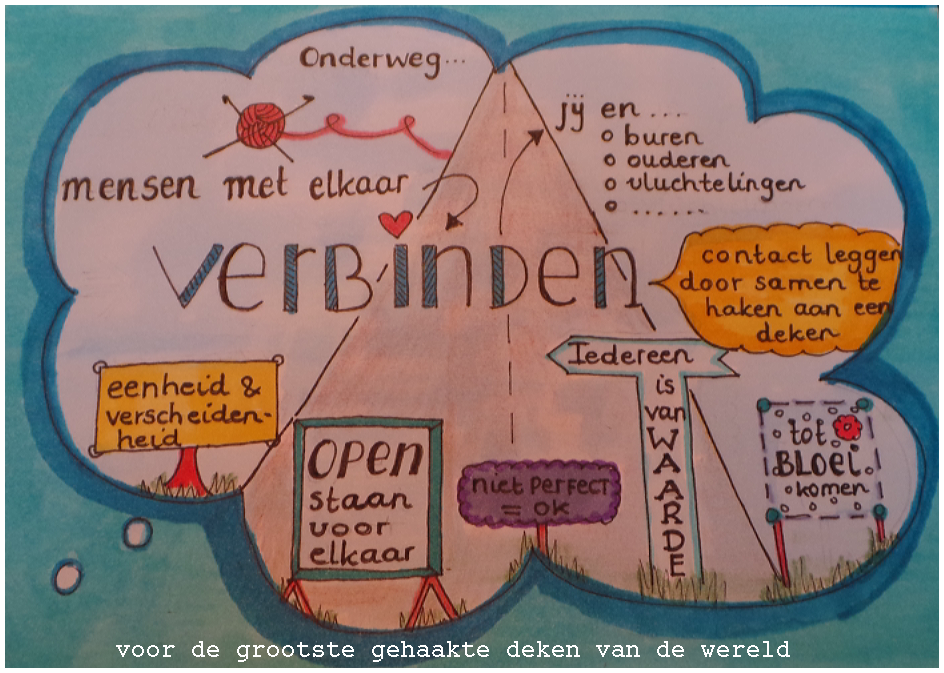 Onderweg...
mensen met elkaar
jij en ....
buren
ouderen
vluchtelingen
......
verbinden
contact leggen
door samen te
haken aan een
deken
eenheid &
verscheiden-
heid
open
staan
voor
elkaar
niet perfect
= ok
Iedereen
is
van
WAARDE
tot
BLOEI
komen
voor de grootste gehaakte deken van de wereld